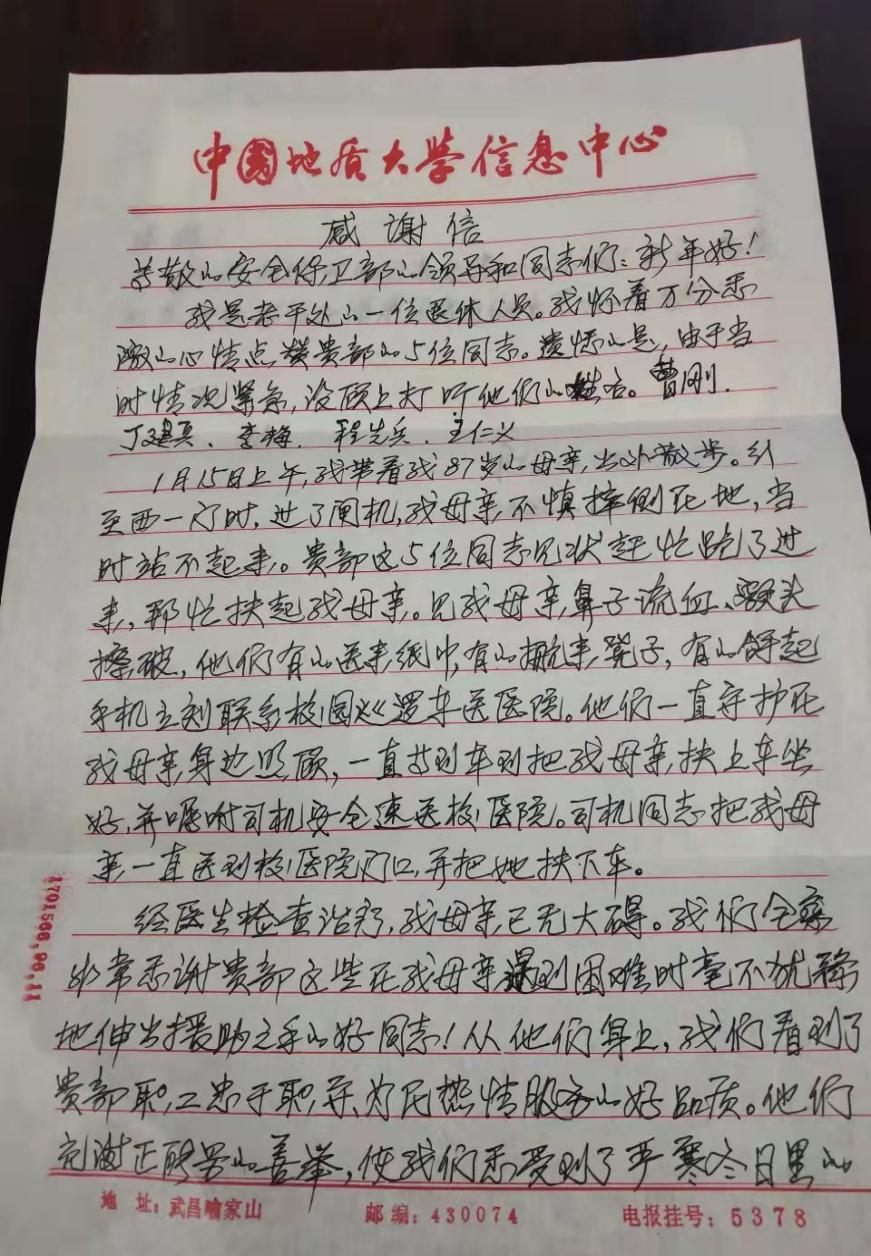 中国地质大学信息中心
感谢信
尊敬的安全保卫部的领导和同志们：新年好！
我是老干处的一位退休人员。我怀着万分感
激的心情点赞贵部的5位同志。遗憾的是，由于当
时情况紧急，没顾上打听他们的姓名。曹刚.
丁建兵、李梅、程先兵、王仁义
1月15日上午，我带着我87岁的母亲，出外散步。行
至西一门时，过了闸机，我母亲不慎摔倒在地，当
时站不起来。贵部这5位同志见状赶忙跑了过
来，帮忙扶起我母亲。见我母亲鼻子流血、额头
擦破，他们有的送来纸巾，有的搬来凳子，有的拿起
手机立刻联系校园巡逻车送医院。他们一直守护在
我母亲身边照顾，一直等到车到把我母亲扶上车坐
好，并嘱咐司机安全速送校医院。司机同志把我母
亲一直送到校医院门口，再把她扶下车。
经医生检查治疗，我母亲已无大碍。我们全家
非常感谢贵部这些在我母亲遇到困难时毫不犹豫
地伸出援助之手的好同志！从他们身上，我们看到了
贵部职工忠于职守、为民热情服务的好品质。他们
的善举，使我们感受到了严寒冬日里的
地 址：武昌喻家山 邮编：430074 电报挂号：5378
1701566,96,11